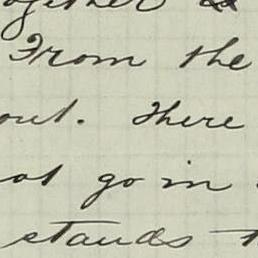 together
From the
out. There
not go in
stands